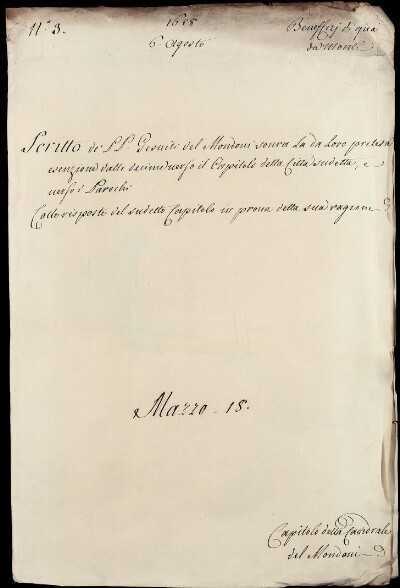 N.° 3.
6 Agosto
Beneffizj di quà
da' monti
Scritto de' PP. Gesuiti del Mondovì sovra la da loro pretesa
esenzione dalle decime verso il Capitolo della Città sudetta, e
verso i Parochi
Colle risposte del sudetto Capitolo in prova della sua ragione
Mazzo 18.
Capitolo della Cattedrale
del Mondovì